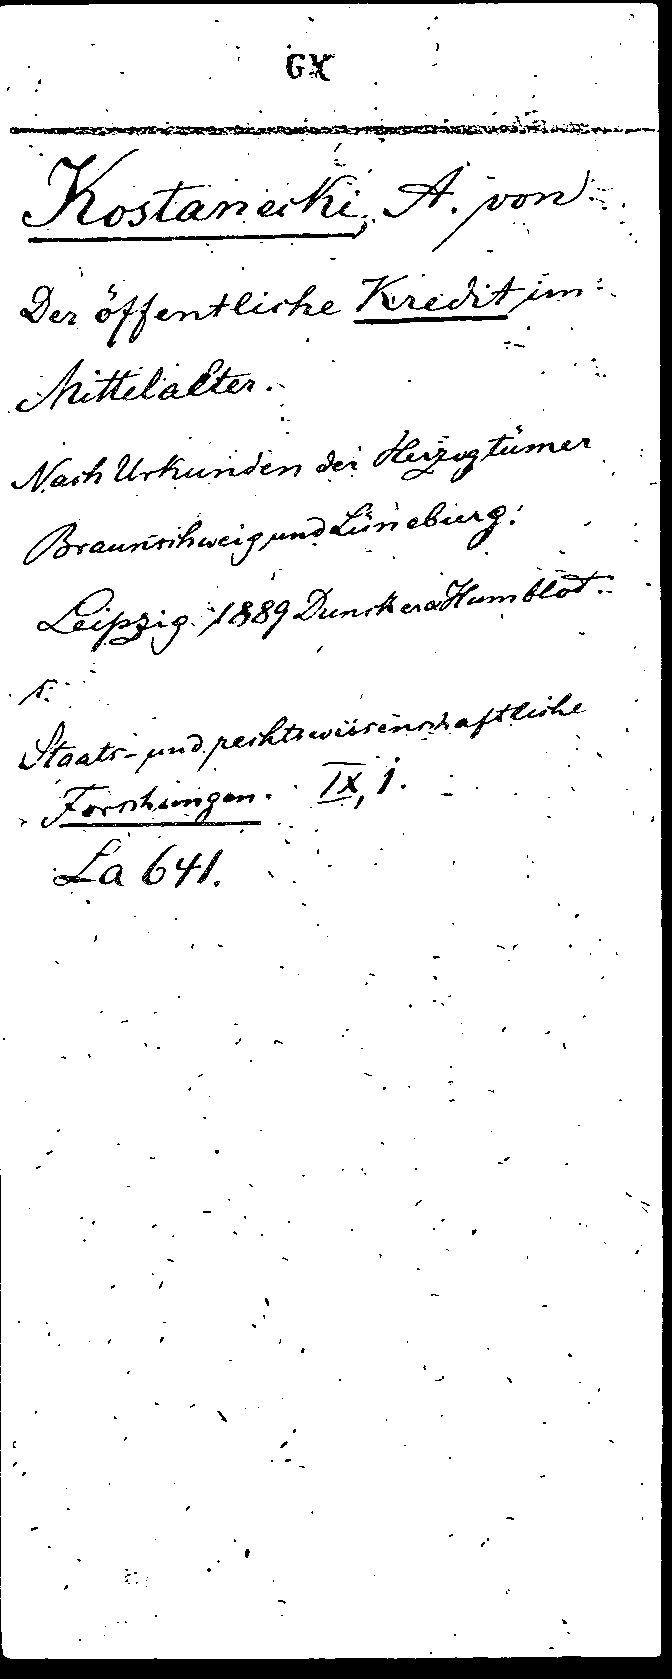 GX
Kostanecki, A. von
Der öffentliche Kredit im
Mittelalter.
Nach Urkunden der Herzogtümer
Braunschweig und Lüneburg.
Leipzig 1889 Duncker & Humblot.
s.
Staats- und rechtswissenschaftliche
Forschungen. IX, 1.
La 641.